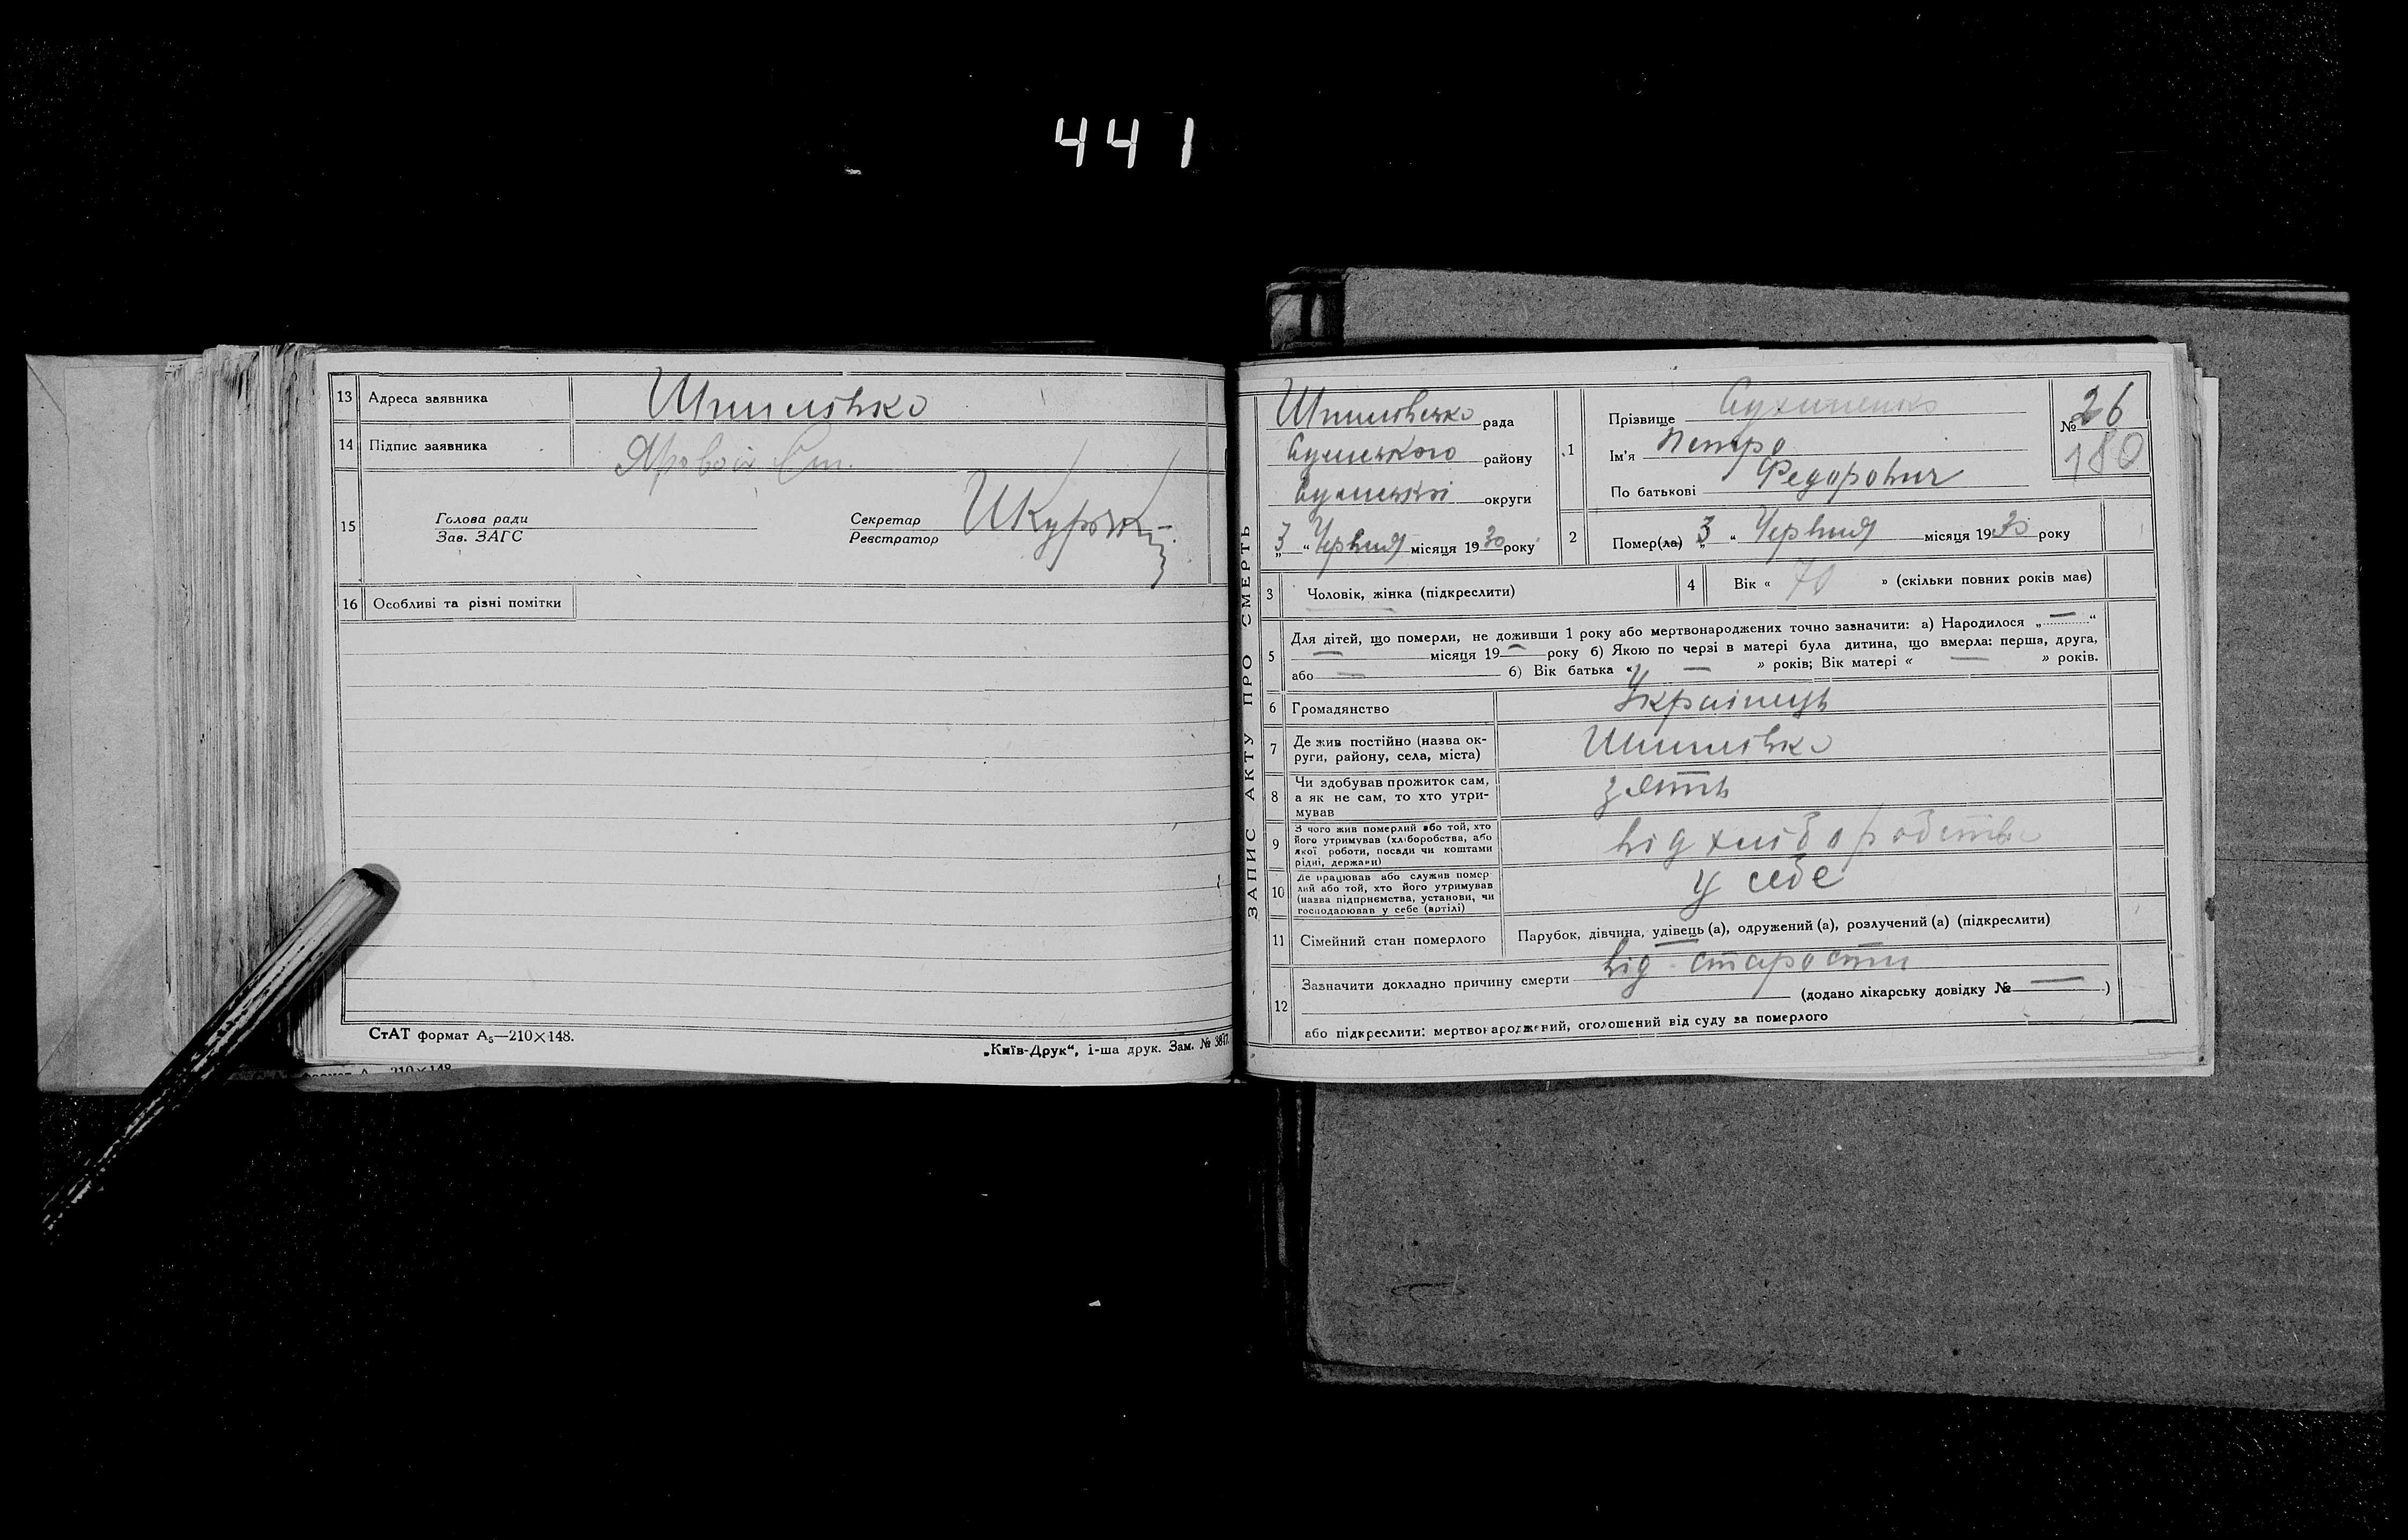 441
13 Адреса заявника Шпилівка
14 Підпис заявника Яровой Ст.
15 Голова ради
Зав. ЗАГС
Секретар
Реєстратор
16 Особливі та різні помітки
СтАТ формат А₅—210×148.
„Київ-Друк“, 1-ша друк. Зам. № 3847.
210×148
ЗАПИС АКТУ ПРО СМЕРТЬ
Шпилівська рада
Сумського району
Сумської округи
„3“ Червня місяця 1930 року
1 Прізвище
Ім'я Петро
По батькові Федорович
№ 26
180
2 Помер(ла) 3 “ Червня місяця 1930 року
3 Чоловік, жінка (підкреслити)
4 Вік « 70 » (скільки повних років має)
5 Для дітей, що померли, не доживши 1 року або мертвонароджених точно зазначити: а) Народилося „ — “
— місяця 19 — року б) Якою по черзі в матері була дитина, що вмерла: перша, друга,
або — б) Вік батька « — » років; Вік матері « — » років.
6 Громадянство Українець
7 Де жив постійно (назва ок-
руги, району, села, міста) Шпилівка
8 Чи здобував прожиток сам,
а як не сам, то хто утри-
мував зять
9 З чого жив померлий або той, хто
його утримував (хліборобства, або
якої роботи, посади чи коштами
рідні, держави) від хліборобства
10 Де працював або служив помер-
лий або той, хто його утримував
(назва підприємства, установи, чи
господарював у себе (артілі) у себе
11 Сімейний стан померлого Парубок, дівчина, удівець (а), одружений (а), розлучений (а) (підкреслити)
12 Зазначити докладно причину смерти від старости
(додано лікарську довідку № — )
або підкреслити: мертвонароджений, оголошений від суду за померлого